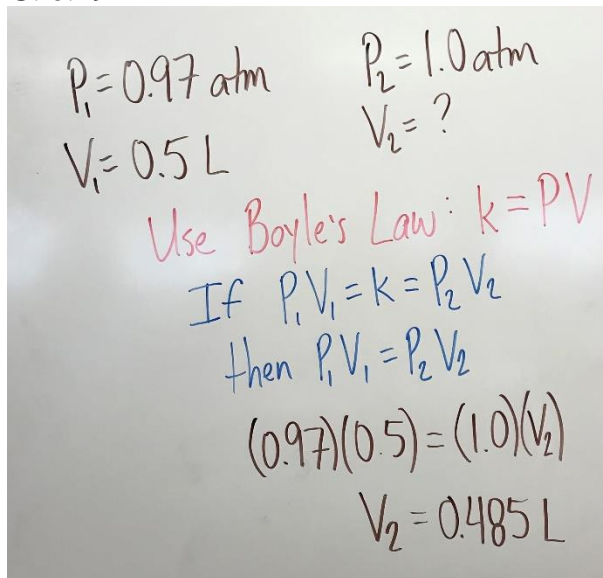 P₁=0.97 atm
V₁=0.5 L
P₂=1.0 atm
V₂=?
Use Boyle's Law: k=PV
If P₁V₁=k=P₂V₂
then P₁V₁=P₂V₂
(0.97)(0.5)=(1.0)(V₂)
V₂=0.485 L